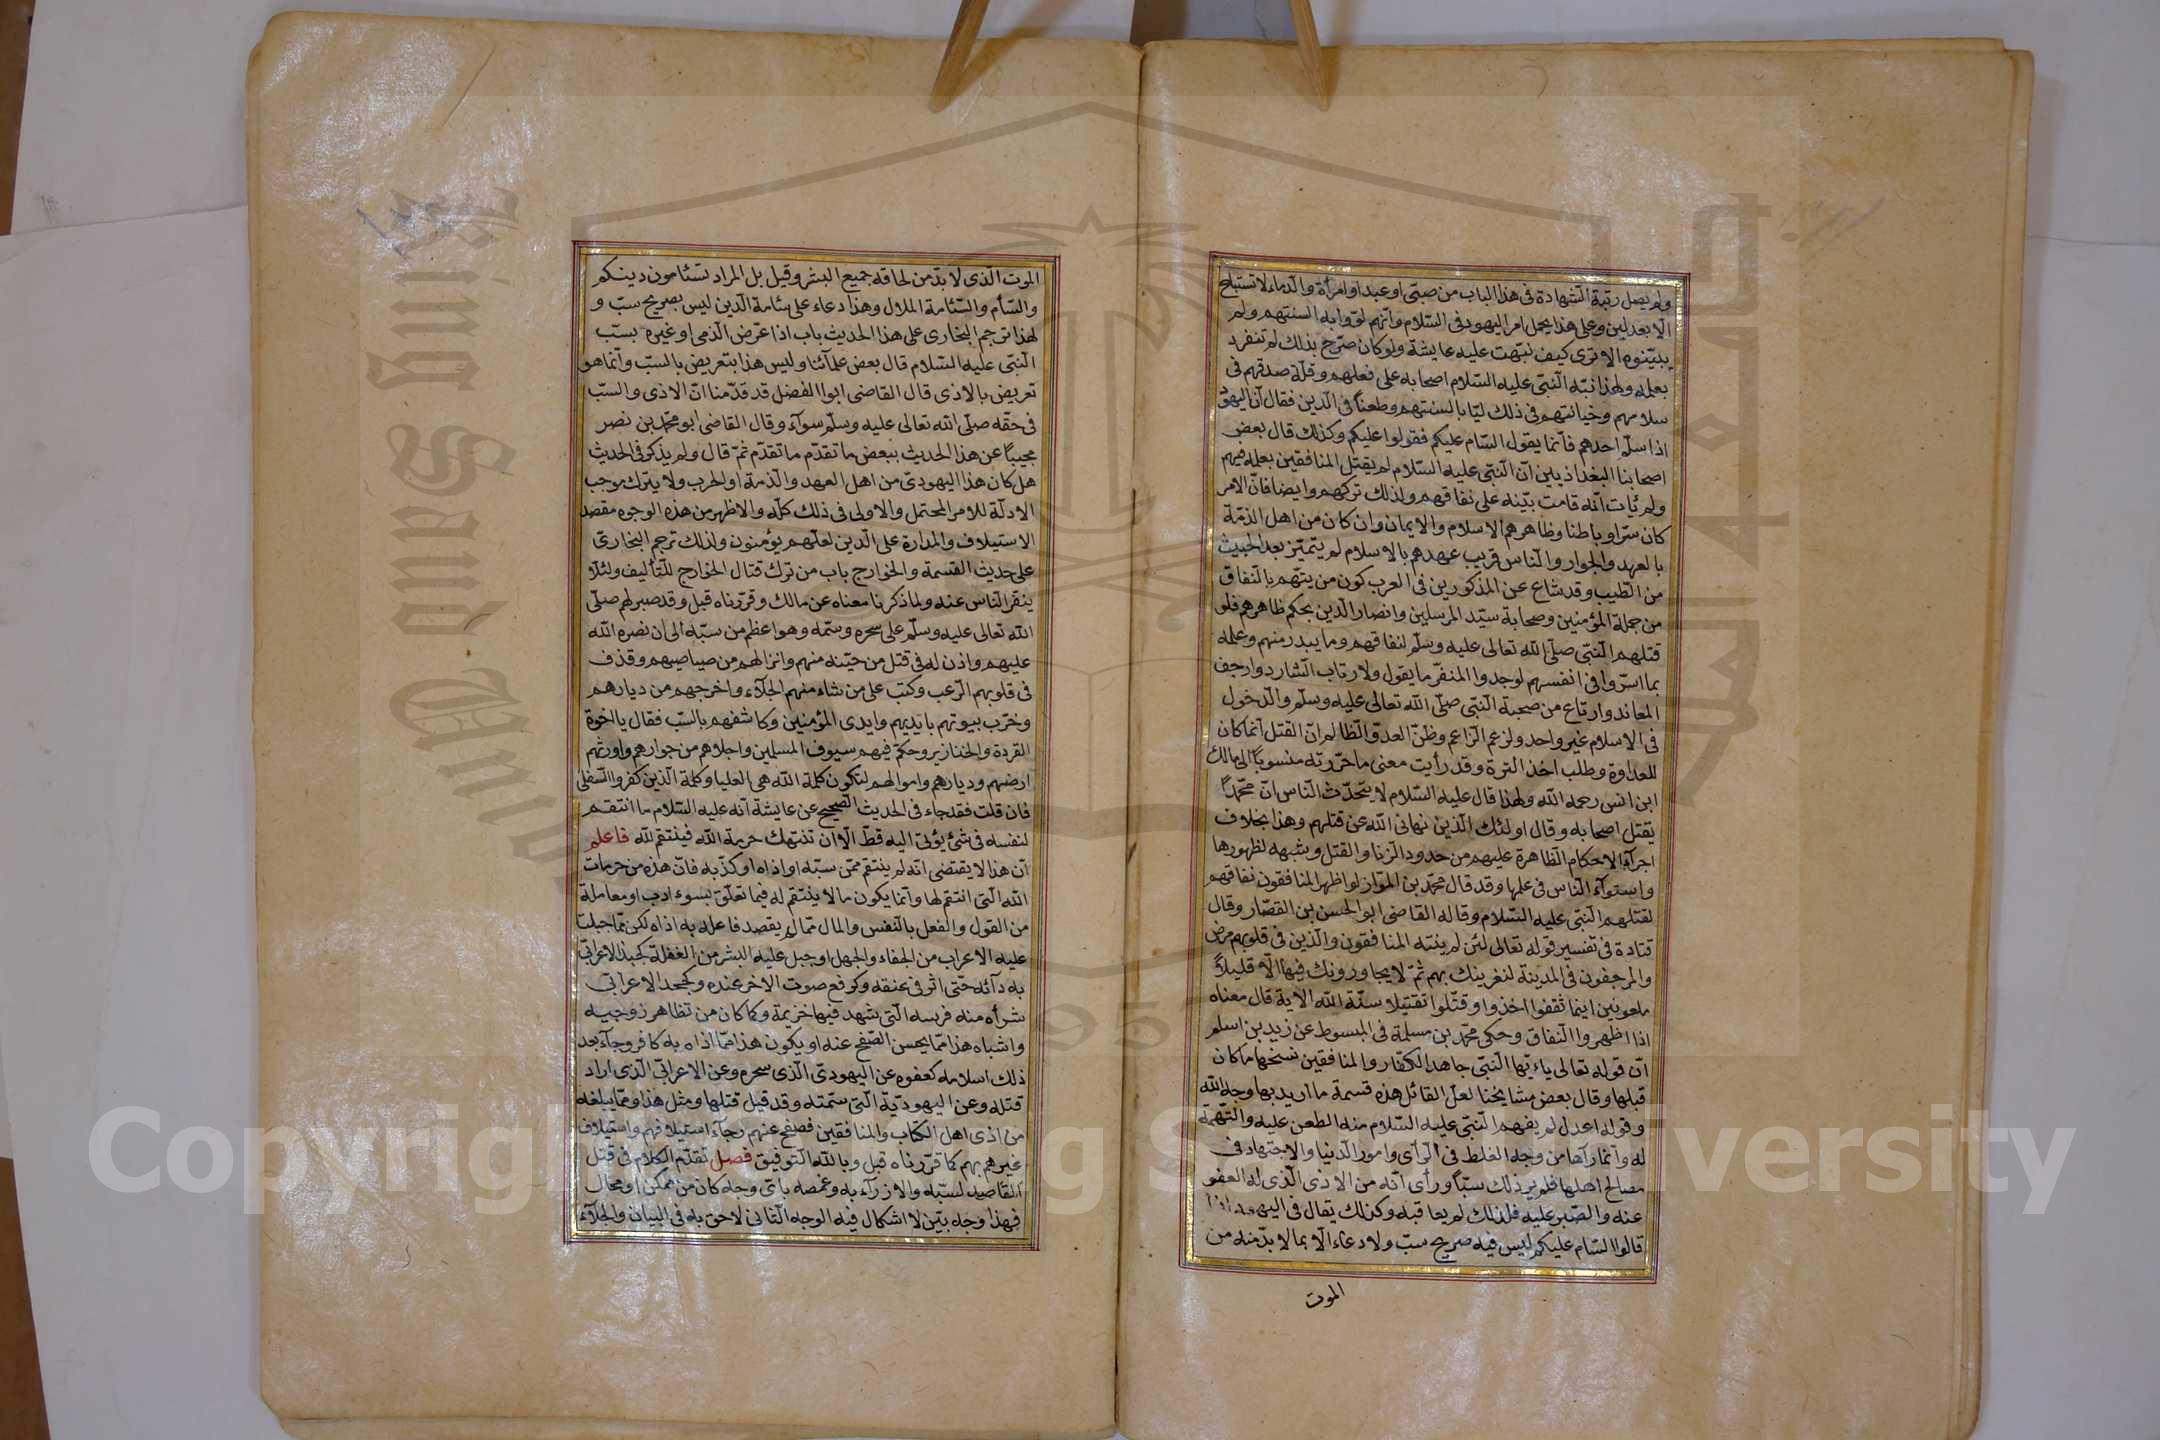 ولم يصل رتبة الشهادة فى هذا الباب من صبىّ او عبد او امرأة والدماء لا تستباح
الّا بعدلين وعلى هذا يحمل امر اليهود فى السّلام وانّهم لوّوا به السنتهم ولم
يبيّنوه الا ترى كيف نبّهت عليه عايشة ولو كان صرّح بذلك لم تنفرد
بعلمه ولهذا نبّه النّبى عليه السّلام اصحابه على فعلهم وقلّة صدقهم فى
سلامهم وخيانتهم فى ذلك ليّا بالسنتهم وطعنا فى الدّين فقال انّ اليهود
اذا سلّم احدهم فانّما يقول السّام عليكم فقولوا عليكم وكذلك قال بعض
اصحابنا البغداذيين انّ النّبى عليه السّلام لم يقتل المنافقين بعلمه فيهم
ولم يأت انّه قامت بيّنه على نفاقهم ولذلك تركهم وايضا فانّ الامر
كان سرّا وباطنا وظاهرهم الاسلام والايمان وان كان من اهل الذمّة
بالعهد والجوار والنّاس قريب عهدهم بالاسلام لم يتميّز بعد الخبيث
من الطّيب وقد شاع عن المذكورين فى العرب كون من يتّهم بالنّفاق
من جملة المؤمنين وصحابة سيّد المرسلين وانصار الدّين بحكم ظاهرهم فلو
قتلهم النّبى صلّى الله تعالى عليه وسلّم لنفاقهم وما يبدر منهم وعلمه
بما اسرّوا فى انفسهم لوجدوا المنفّر ما يقول ولارتاب الشّارد وارجف
المعاند وارتاع من صحبة النّبى صلّى الله تعالى عليه وسلّم والدّخول
فى الاسلام غير واحد ولزعم الزّاعم وظنّ العدوّ الظّالم انّ القتل انّما كان
للعداوة وطلب اخذ الترة وقد رأيت معنى ما حرّرته منسوبا الى مالك
ابن انس رحمه الله ولهذا قال عليه السّلام لا يتحدّث النّاس انّ محمّدا
يقتل اصحابه وقال اولئك الّذين نهانى الله عن قتلهم وهذا بخلاف
اجراء الاحكام الظّاهرة عليهم من حدود الزّنا والقتل وشبهه لظهورها
واستوآء النّاس فى علمها وقد قال محمّد بن الموّاز لو اظهر المنافقون نفاقهم
لقتلهم النّبى عليه السّلام وقاله القاضى ابو الحسن بن القصّار وقال
قتادة فى تفسير قوله تعالى لئن لم ينته المنافقون والّذين فى قلوبهم مرض
والمرجفون فى المدينة لنغرينك بهم ثمّ لا يجاورونك فيها الّا قليلاً
ملعونين اينما ثقفوا اخذوا وقتّلوا تقتيلا سنّة الله الاية قال معناه
اذا اظهروا النّفاق وحكى محمّد بن مسلمة فى المبسوط عن زيد بن اسلم
انّ قوله تعالى يا ايّها النّبى جاهد الكفّار والمنافقين نسخها ما كان
قبلها وقال بعض مشايخنا لعلّ القائل هذه قسمة ما اريد بها وجه الله
وقوله اعدل لم يفهم النّبى عليه السّلام منه الطعن عليه والتّهمة
له وانّما رآها من وجه الغلط فى الرّأى وامور الدّنيا والاجتهاد فى
مصالح اهلها فلم ير ذلك سبّا ورأى انّه من الاذى الّذى له العفو
عنه والصّبر عليه فلذلك لم يعاقبه وكذلك يقال فى اليهود اذا
قالوا السّام عليكم ليس فيه صريح سبّ ولا دعاء الّا بما لا بدّ منه من
الموت
الموت الّذى لا بدّ من لحاقه جميع البشر وقيل بل المراد تسئامون دينكم
والسّأم والسّئامة الملال وهذا دعاء على سئامة الدّين ليس بصريح سبّ و
لهذا ترجم البخارى على هذا الحديث باب اذا عرّض الذّمى او غيره بسبّ
النّبى عليه السّلام قال بعض علمآئنا وليس هذا بتعريض بالسبّ وانّما هو
تعريض بالاذى قال القاضى ابوا الفضل قد قدّمنا انّ الاذى والسّبّ
فى حقّه صلّى الله تعالى عليه وسلّم سوآء وقال القاضى ابو محمّد بن نصر
مجيبا عن هذا الحديث ببعض ما تقدّم ما تقدّم ثمّ قال ولم يذكر فى الحديث
هل كان هذا اليهودىّ من اهل العهد والذّمة او الحرب ولا يترك موجب
الادلّة للامر المحتمل والاولى فى ذلك كلّه والاظهر من هذه الوجوه مقصد
الاستيلاف والمدارة على الدّين لعلّهم يؤمنون ولذلك ترجم البخارى
على حديث القسمة والخوارج باب من ترك قتال الخوارج للتّأليف ولئلّا
ينفر النّاس عنه ولما ذكرنا معناه عن مالك وقرّرناه قبل وقد صبر لهم صلّى
الله تعالى عليه وسلّم على سحره وسمّه وهو اعظم من سبّه الى ان نصره الله
عليهم واذن له فى قتل من حيّنه منهم وانزالهم من صياصيهم وقذف
فى قلوبهم الرّعب وكتب على من شاء منهم الجلآء واخرجهم من ديارهم
وخرّب بيوتهم بايديهم وايدى المؤمنين وكاشفهم بالسّبّ فقال يا اخوة
القردة والخنازير وحكّم فيهم سيوف المسلمين واجلاهم من جوارهم واورثهم
ارضهم وديارهم واموالهم لتكون كلمة الله هى العليا وكلمة الّذين كفروا السّفلى
فان قلت فقد جاء فى الحديث الصّحيح عن عايشة انّه عليه السّلام ما انتقم
لنفسه فى شئ يؤتى اليه قطّ الّا ان تنتهك حرمة الله فينتقم لله فاعلم
انّ هذا لا يقتضى انّه لم ينتقم ممّن سبّه او اذاه او كذّبه فانّ هذه من حرمات
الله الّتى انتقم لها وانّما يكون ما لا ينتقم له فيما تعلّق بسوء ادب او معاملة
من القول والفعل بالنّفس والمال ممّا لم يقصد فاعله به اذاه لكن ممّا جبلت
عليه الاعراب من الجفاء والجهل او جبل عليه البشر من الغفلة كجبذ الاعرابىّ
به ردآئه حتّى اثر فى عنقه وكرفع صوت الاخر عنده وكجحد الاعرابى
شرأه منه فرسه الّتى شهد فيها خزيمة وكما كان من تظاهر زوجيه
واشباه هذا ممّا يحسن الصّفح عنه او يكون هذا ممّا اذاه به كافر وجآء بعد
ذلك اسلامه كعفوه عن اليهودىّ الّذى سحره وعن الاعرابىّ الّذى اراد
قتله وعن اليهوديّة الّتى سمّته وقد قيل قتلها ومثل هذا وممّا يبلغه
من اذى اهل الكتاب والمنافقين فصفح عنهم رجآء استيلافهم واستيلاف
غيرهم بهم كما قرّرناه قبل وبالله التّوفيق فصل تقدّم الكلام فى قتل
القاصد لسبّه والازرآء به وغمصه باىّ وجه كان من ممكن او محال
فهذا وجه بيّن لا اشكال فيه الوجه الثّانى لاحق به فى البيان والجلآء